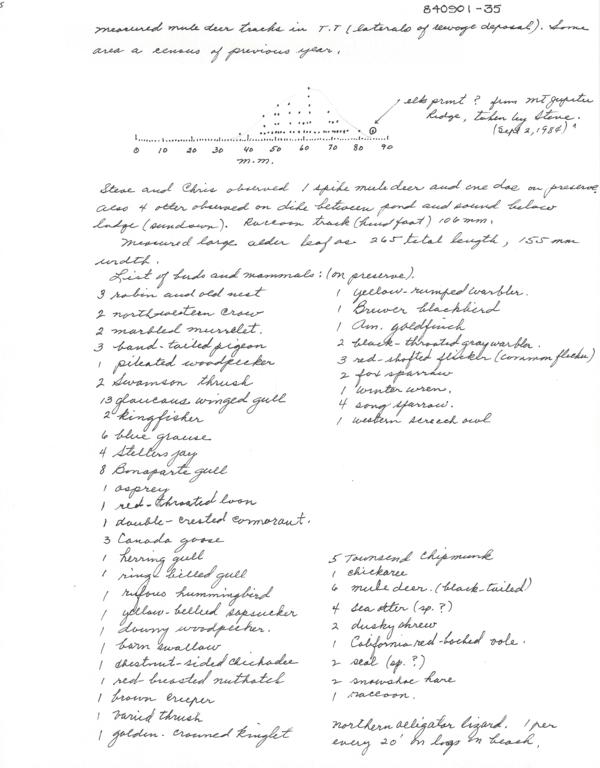 840901-35
measured mule deer tracks in T.T (laterals of sewage deposal). Some
area a census of previous year.
elk print? from Mt Jupiter
Ridge, taken by Steve.
(Sept 2, 1984)
0 10 20 30 40 50 60 70 80 90
m.m.
Steve and Chris observed 1 spike mule deer and one doe on preserve,
also 4 otter observed on dike between pond and sound below
lodge (sundown). Raccoon track (hind foot) 106 mm.
Measured large alder leaf as 265 total length, 155 mm
width.
List of birds and mammals: (on preserve).
3 robin and old nest
2 northwestern crow
2 marbled murrelet.
3 band-tailed pigeon
1 pileated woodpecker
2 Swainson thrush
13 glaucous winged gull
2 kingfisher
6 blue grouse
4 Stellers jay
8 Bonaparte gull
1 osprey
1 red-throated loon
1 double-crested cormorant.
3 Canada goose
1 herring gull
1 ring-billed gull
1 rufous hummingbird
1 yellow-bellied sapsucker
1 downy woodpecker.
1 barn swallow
1 chestnut-sided chickadee
1 red-breasted nuthatch
1 brown creeper
1 varied thrush
1 golden-crowned kinglet
1 yellow-rumped warbler.
1 Brewer blackbird
1 Am. goldfinch
2 black-throated gray warbler.
3 red-shafted flicker (common flicker)
2 fox sparrow
1 winter wren.
4 song sparrow.
1 western screech owl
5 Townsend Chipmunk
1 chickaree
6 mule deer. (black-tailed)
4 sea otter (sp.?)
2 dusky shrew
1 California red-backed vole.
2 seal (sp.?)
2 snowshoe hare
1 raccoon.
northern alligator lizard. 1 per
every 20' on logs on beach.